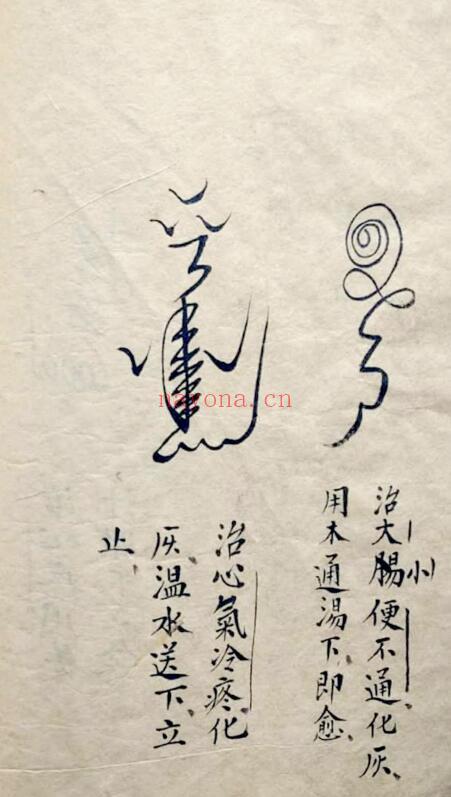 治大小腸便不通化灰
用木通湯下即愈
治心氣冷疼化
灰溫水送下立
止
nayona.cn